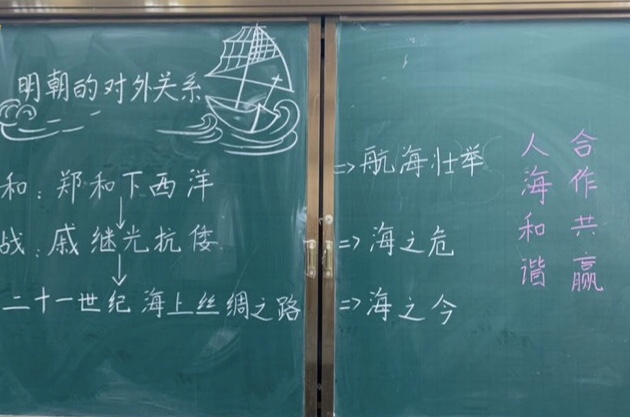 明朝的对外关系
和：郑和下西洋 ⇒航海壮举
↓
战：戚继光抗倭 ⇒海之危
↓
二十一世纪 海上丝绸之路 ⇒海之今
合作共赢
人海和谐